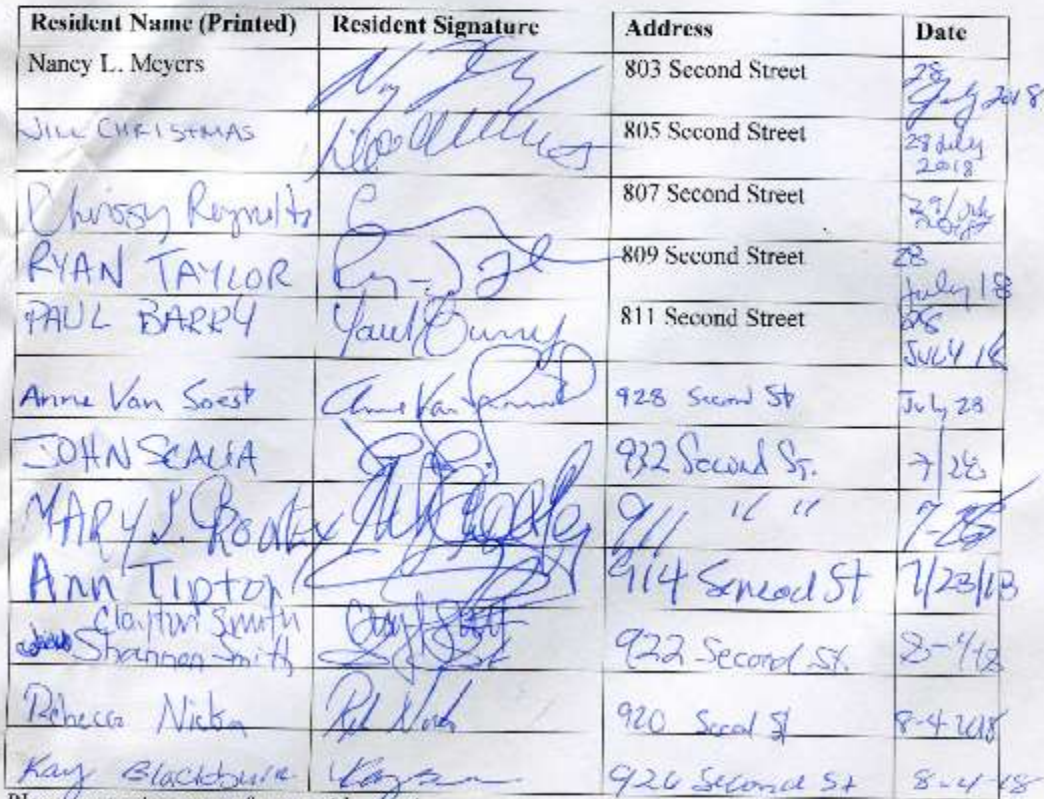 Resident Name (Printed) Resident Signature Address Date
Nancy L. Meyers 803 Second Street 28 July 2018
JILL CHRISTMAS 805 Second Street 28 July 2018
Chrissy Reynolds 807 Second Street
RYAN TAYLOR 809 Second Street 28 July 18
PAUL BARRY Paul Barry 811 Second Street 28 JULY 18
Anne Van Soest Anne Van 928 Second St July 28
JOHN SCALIA 932 Second St. 7/28
MARY L. 911 " " 7-28
Ann Tipton 914 St 7/28/18
Clayton Smith
Shannon Smith 922 Second St. 8-4-18
Rebecca 920 Second St 8-4-2018
Kay Blackburn Kay 926 Second St 8-4-18